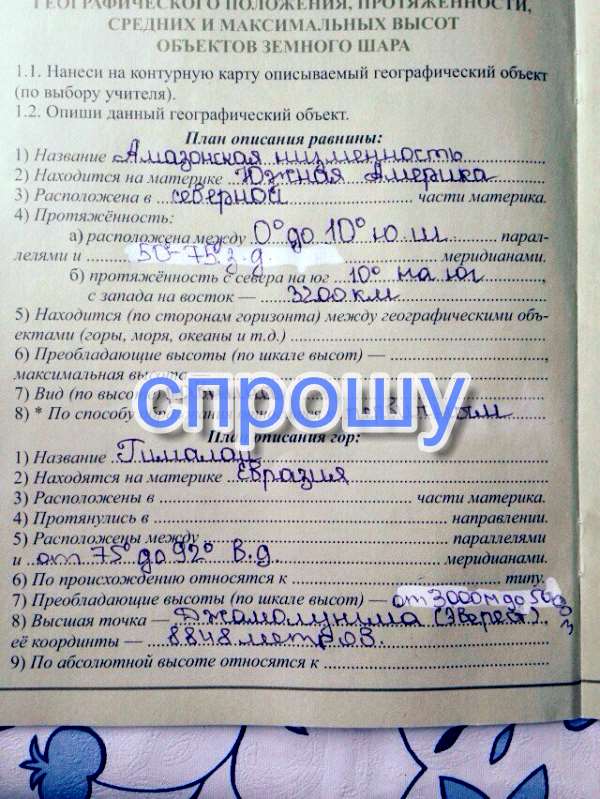 ГЕОГРАФИЧЕСКОГО ПОЛОЖЕНИЯ, ПРОТЯЖЁННОСТИ,
СРЕДНИХ И МАКСИМАЛЬНЫХ ВЫСОТ
ОБЪЕКТОВ ЗЕМНОГО ШАРА
1.1. Нанеси на контурную карту описываемый географический объект
(по выбору учителя).
1.2. Опиши данный географический объект.
План описания равнины:
1) Название Амазонская низменность
2) Находится на материке Южная Америка
3) Расположена в северной части материка.
4) Протяжённость:
а) расположена между 0° до 10° ю ш парал-
лелями и 50-75° з.д. меридианами.
б) протяжённость с севера на юг 10° на юг,
с запада на восток — 3200 км
5) Находится (по сторонам горизонта) между географическими объ-
ектами (горы, моря, океаны и т.д.)
6) Преобладающие высоты (по шкале высот) — ,
максимальная высота —
7) Вид (по высоте)
спрошу
8) * По способу
План описания гор:
1) Название Гималаи
2) Находятся на материке Евразия
3) Расположены в части материка.
4) Протянулись в направлении.
5) Расположены между параллелями
и от 75° до 92° в.д. меридианами.
6) По происхождению относятся к типу.
7) Преобладающие высоты (по шкале высот) — от 3000 м до 5000
8) Высшая точка — Джомолунгма (Эверест),
её координты — 8848 метров.
9) По абсолютной высоте относятся к